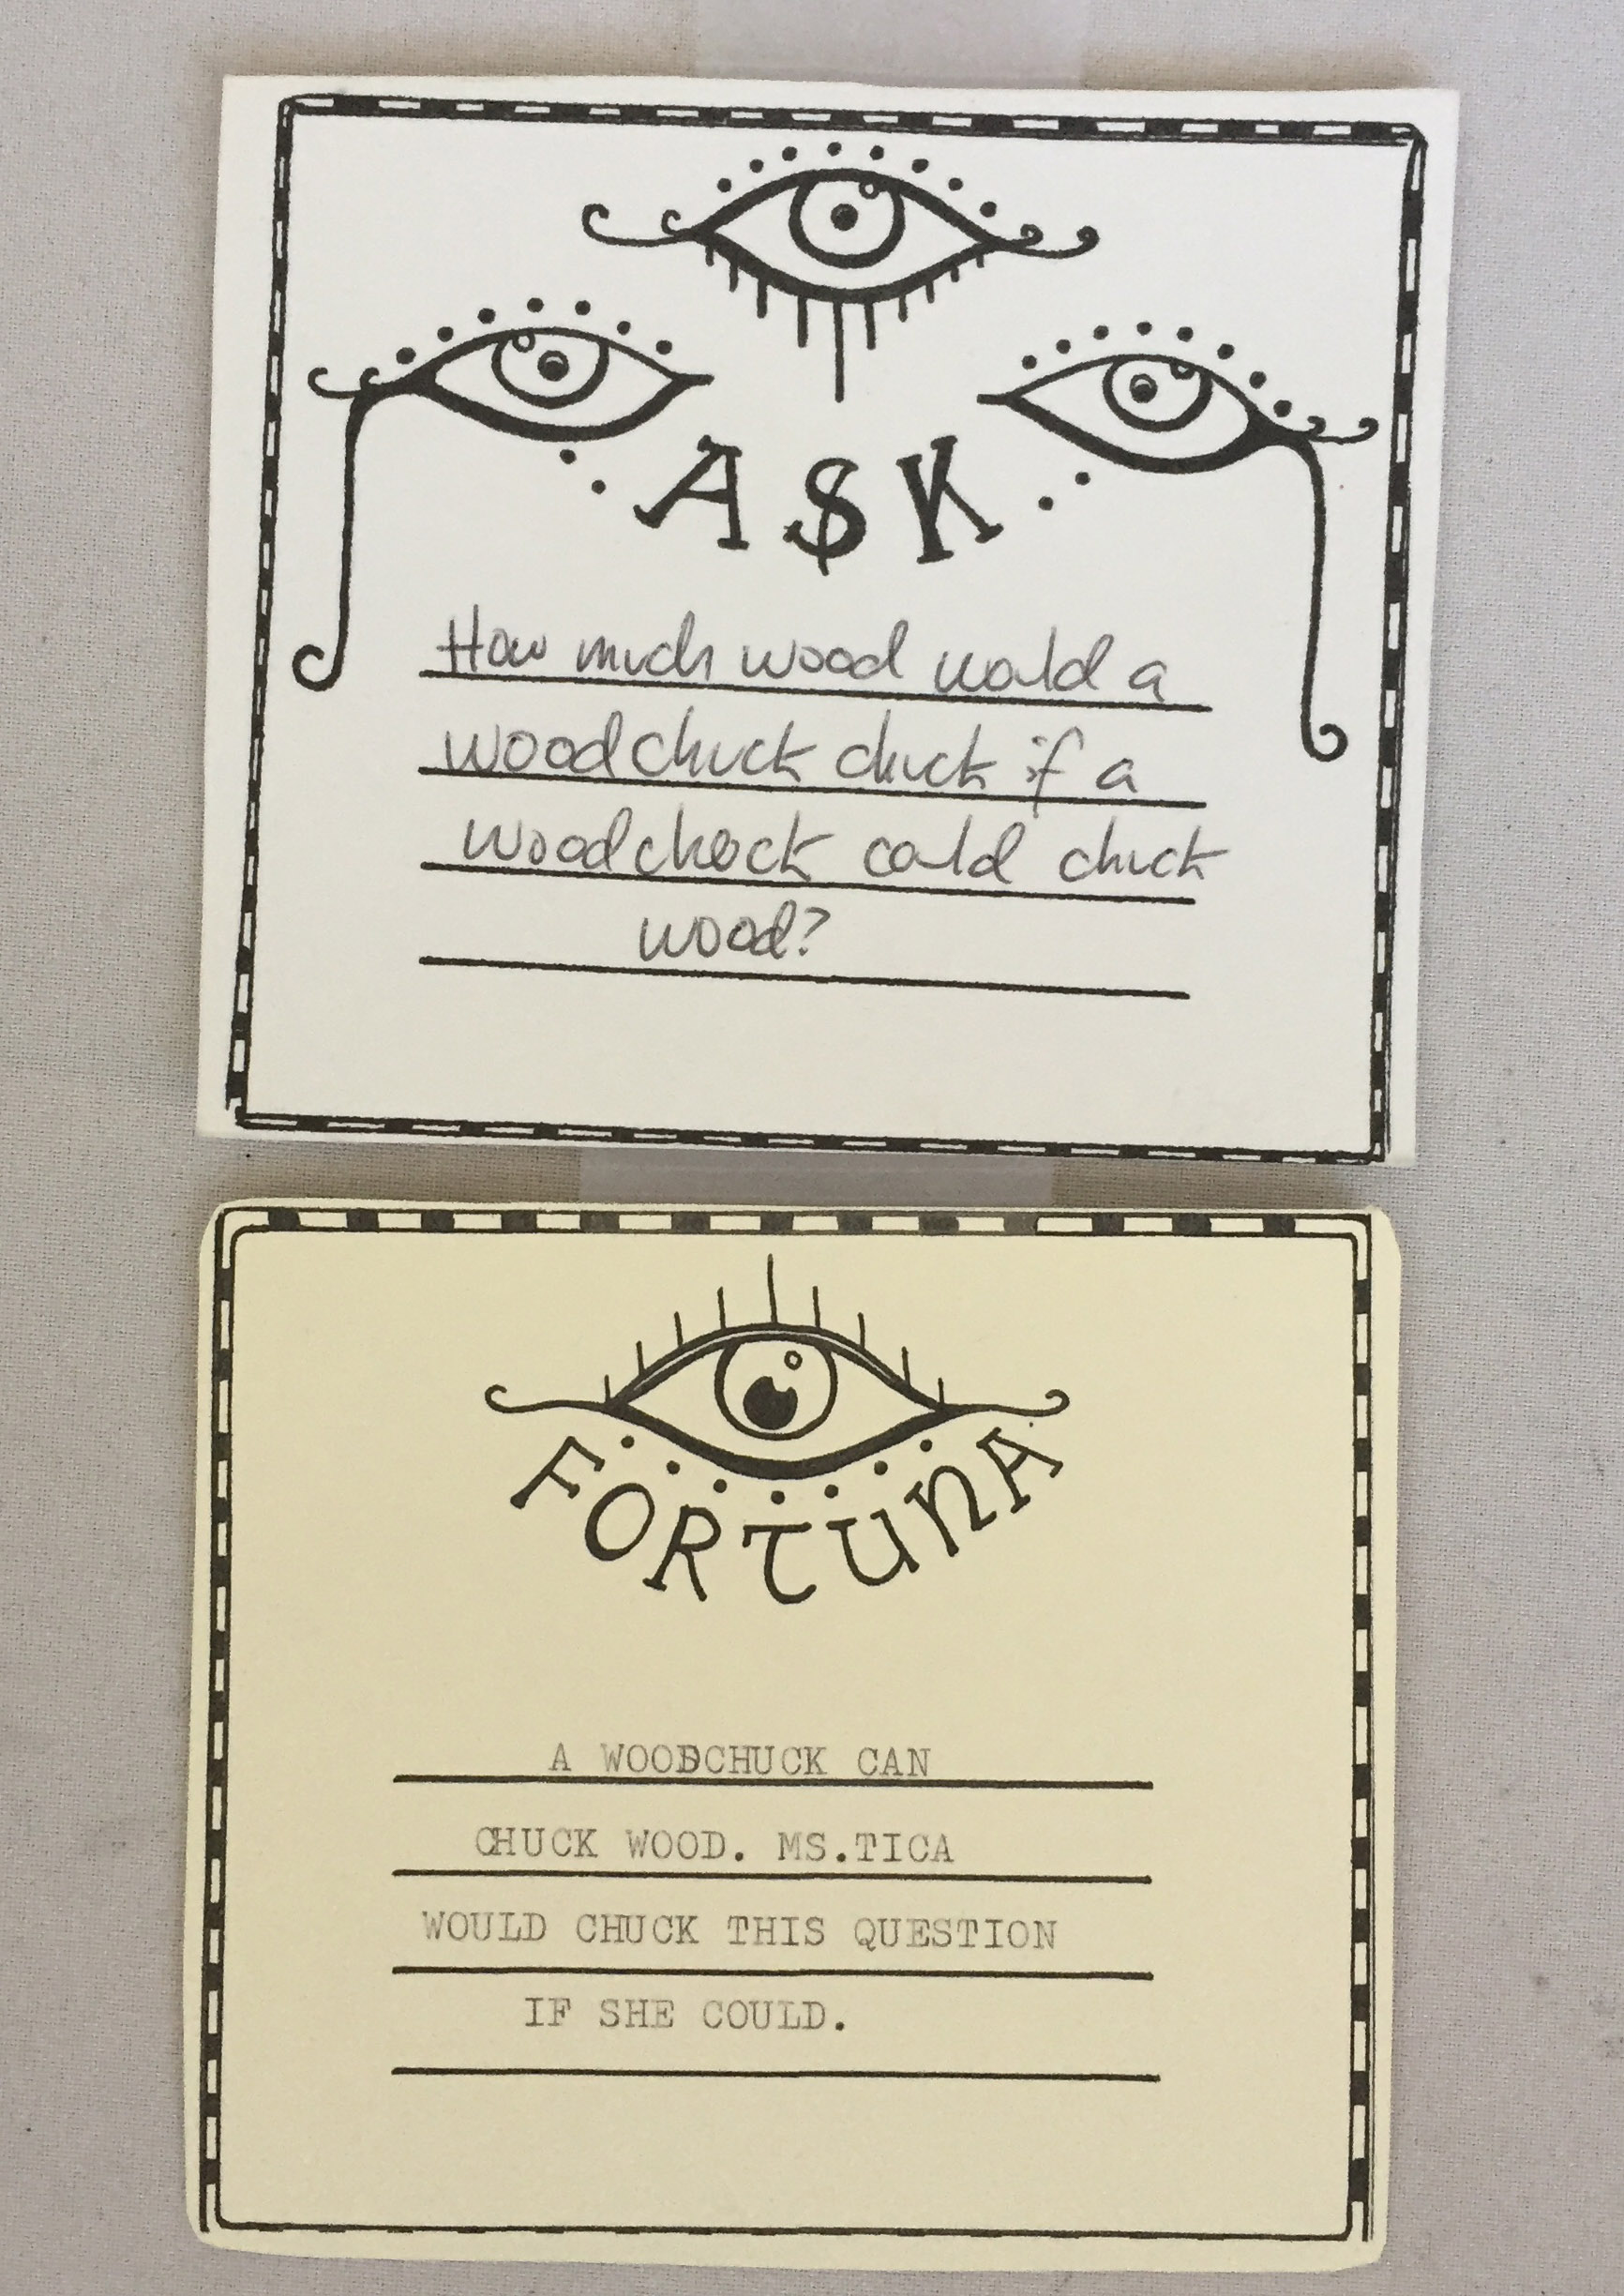 ASK
How much wood would a
woodchuck chuck if a
woodchuck could chuck
wood?
FORTUNA
A WOODCHUCK CAN
CHUCK WOOD. MS.TICA
WOULD CHUCK THIS QUESTION
IF SHE COULD.